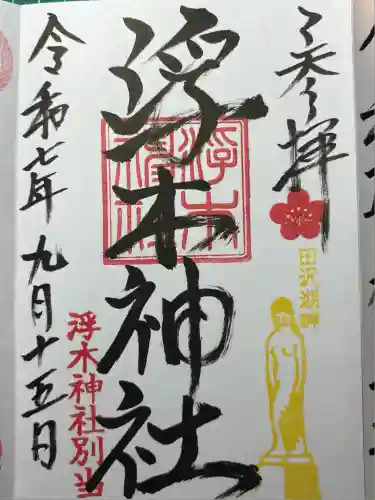 奉拝
田沢湖畔
浮木神社
浮木神社
令和七年九月十五日
浮木神社別当